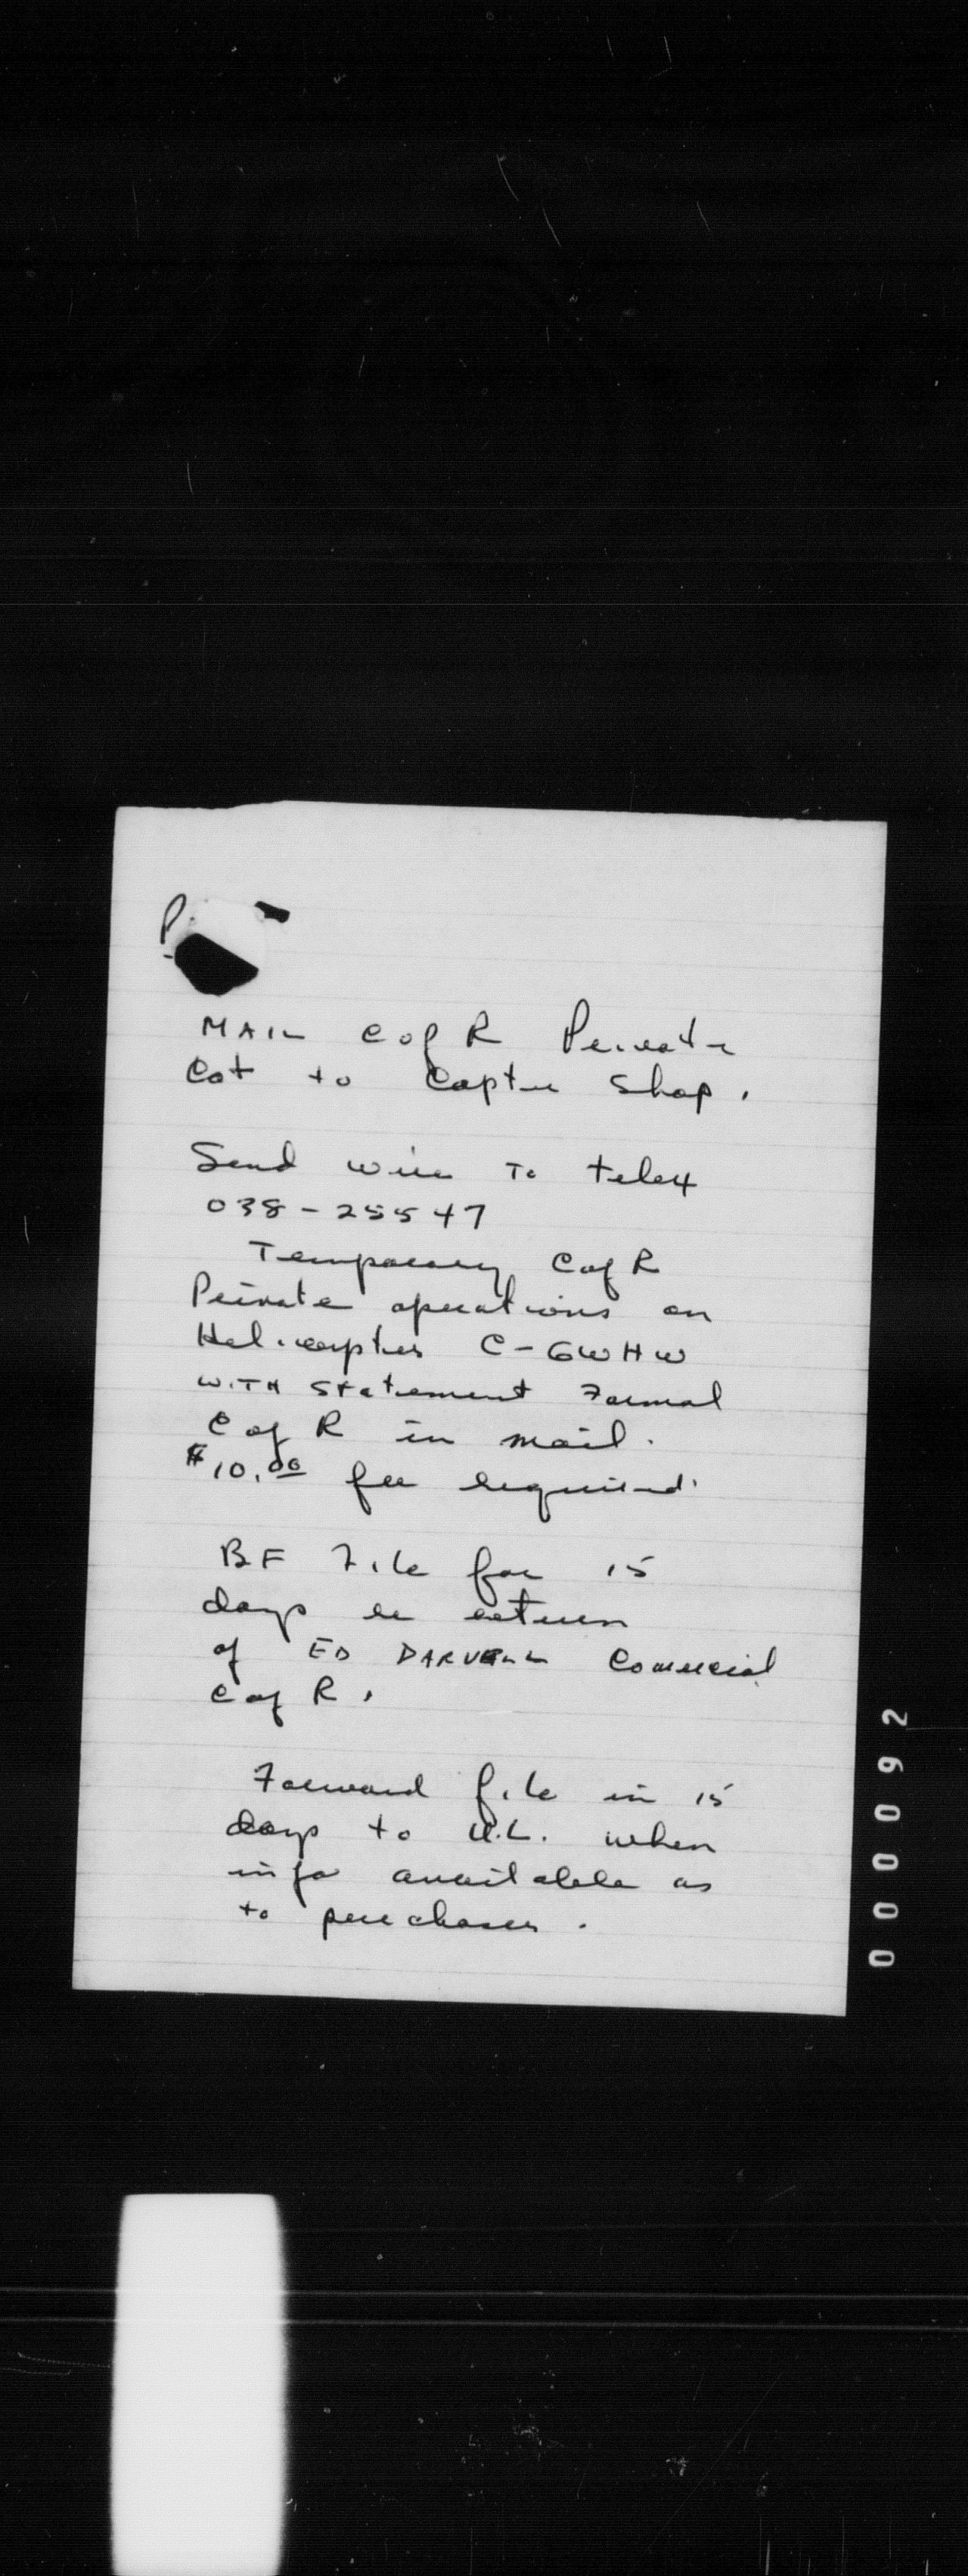 P.
MAIL C of R Private
Cat to Copter Shop.
Send wire To telex
038-25547
Temporary C of R
Private operations on
Helicopter C-GWHW
WITH Statement Formal
C of R in mail.
$10.00 fee required.
BF File for 15
days re return
of ED DARVELL Comercial
C of R.
Forward file in 15
days to U.L. when
info available as
to purchaser.
000092